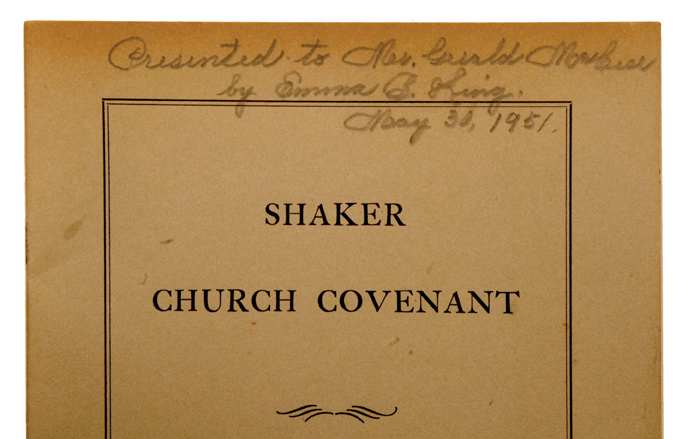 Presented to Mr. Gerald
by Emma B. King.
May 30, 1951.
SHAKER
CHURCH COVENANT